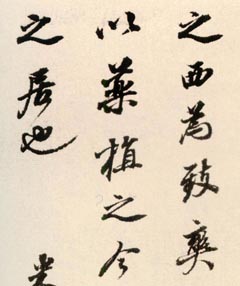 之西為致爽
以藥植之今
之居也
米